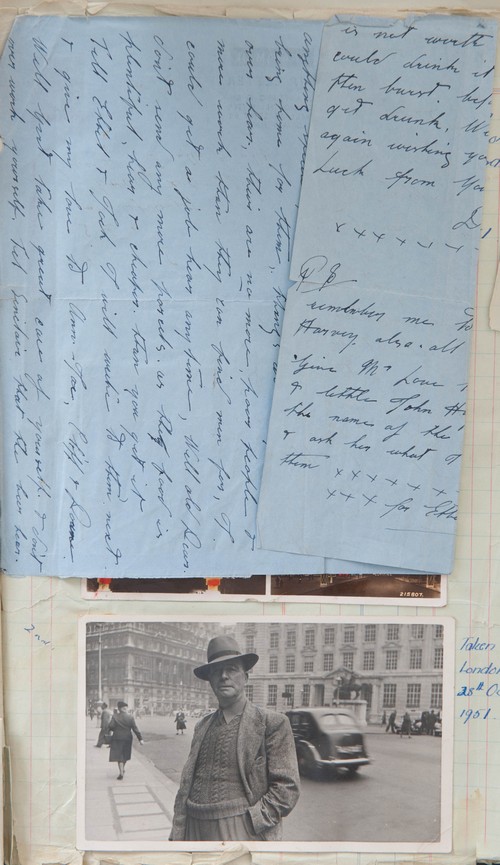 anything
bring home for them, things
over hear, there are no more, poor people &
more work than they can find men for, I
could get a job hear any time, Well old Dear
dont send any more parcels as the food is
plentifull, hear & cheaper than you get it
Tell Ethel & Jack I will write to them next
& give my love to Ann-Joe, Cliff &
Well Girl take great care of yourself & dont
over work yourself. Tell Sinclair that the beer hear
is not worth
could drink it
then burst. bef
get drunk,
again wishing you
Luck from You
x x x x x x
P S
remember me to
Harvey also. all
Give Mrs Love
& little John
the name of the
& ask her what
them x x x x x x
x x x for Ethe
215807.
2nd.
Taken
London
28th Oc
1951.